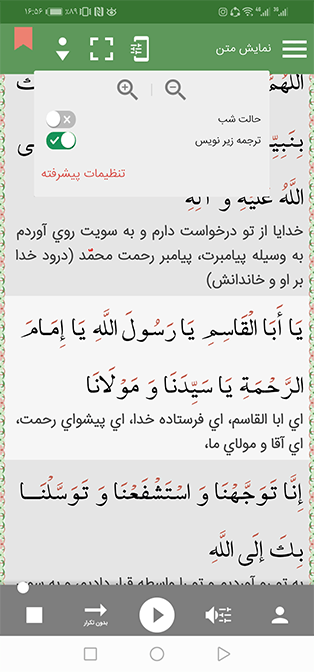 ۱۶:۵۶ ٪۸۹
نمایش متن
اللَّهُمَّ
حالت شب
ترجمه زیر نویس
تنظیمات پیشرفته
اللَّهُ عَلَيْهِ وَ آلِهِ
خدایا از تو درخواست دارم و به سویت روي آوردم
به وسیله پیامبرت، پیامبر رحمت محمّد (درود خدا
بر او و خاندانش)
يَا أَبَا الْقَاسِمِ يَا رَسُولَ اللَّهِ يَا إِمَامَ
الرَّحْمَةِ يَا سَيِّدَنَا وَ مَوْلَانَا
اي ابا القاسم، اي فرستاده خدا، اي پیشواي رحمت،
اي آقا و مولاي ما،
إِنَّا تَوَجَّهْنَا وَ اسْتَشْفَعْنَا وَ تَوَسَّلْنَا
بِكَ إِلَى اللَّهِ
بدون تکرار